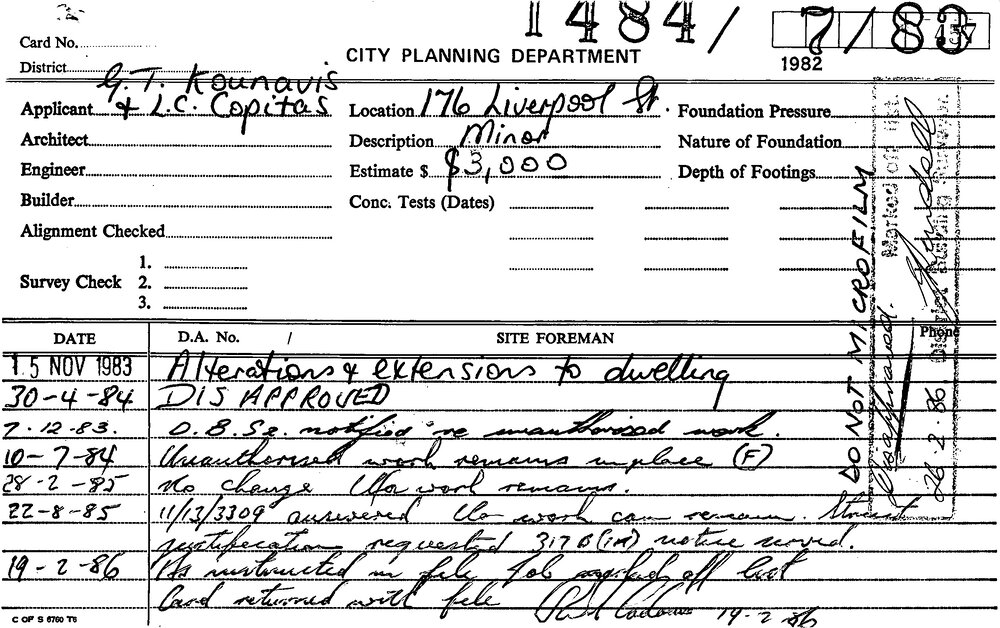 1484/ 7/83
Card No.
CITY PLANNING DEPARTMENT
1982
District
G.T. Kounavis
Applicant & L.C. Copitas Location 176 Liverpool St. Foundation Pressure
Architect Description Minor Nature of Foundation
Engineer Estimate $ $3,000 Depth of Footings
Builder Conc. Tests (Dates)
Alignment Checked
1.
Survey Check 2.
3.
DO NOT MICROFILM
Marked off list.
Disapproved.
District Building Surveyor.
26.2.86
DATE D.A. No. / SITE FOREMAN Phone
15 NOV 1983 Alterations & extensions to dwelling
30-4-84 DISAPPROVED
7.12.83. D.B.Sr. notified re unauthorised work.
10-7-84 Unauthorised work remains in place (F)
28-2-85 No change Ua work remains.
22-8-85 11/13/3309 answered Ua work can remain. Struct
justification requested 317B(1A) notice served.
19-2-86 As instructed in file Job marked off list
Card returned with file 19-2-86
C OF S 6760 T6